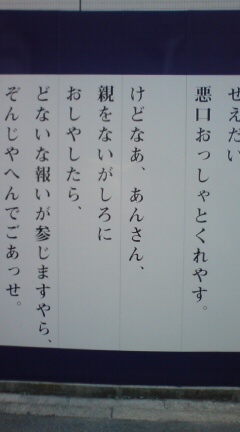 ぜえたい
悪口おっしゃとくれやす。
けどなあ、あんさん、
親をないがしろに
おしやしたら、
どないな報いが参じますやら、
ぞんじやへんでごあっせ。